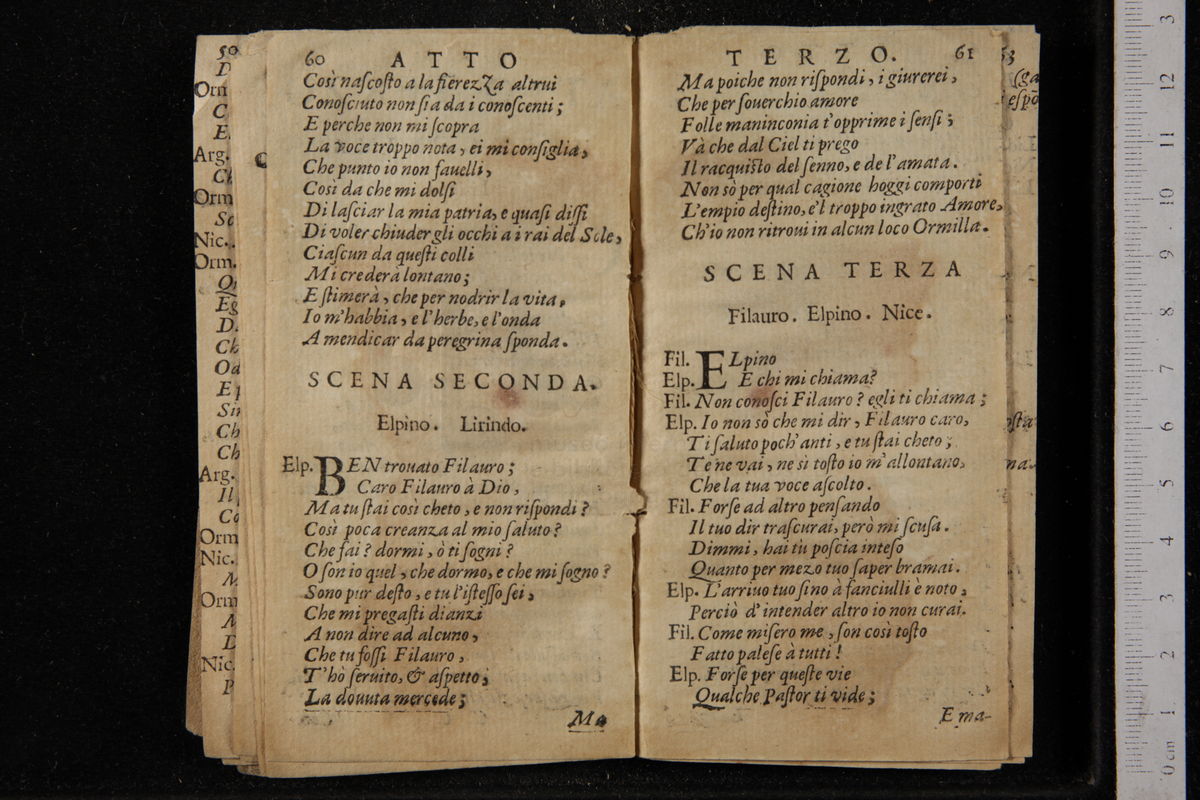 60 ATTO
Così naſcoſto a la fierezza altrui
Conoſciuto non ſia da i conoſcenti;
E perche non mi ſcopra
La voce troppo nota, ei mi conſiglia,
Che punto io non fauelli,
Così da che mi dolſi
Di laſciar la mia patria, e quaſi diſſi
Di voler chiuder gli occhi a i rai del Sole,
Ciaſcun da queſti colli
Mi crederà lontano;
E ſtimerà, che per nodrir la vita,
Io m'habbia, e l'herbe, e l'onda
A mendicar da peregrina ſponda.
SCENA SECONDA.
Elpino. Lirindo.
Elp. BEN trouato Filauro;
Caro Filauro à Dio,
Ma tu ſtai così cheto, e non riſpondi?
Così poca creanza al mio ſaluto?
Che fai? dormi, ò ti ſogni?
O ſon io quel, che dormo, e che mi ſogno?
Sono pur deſto, e tu l'iſteſſo ſei,
Che mi pregaſti dianzi
A non dire ad alcuno,
Che tu foſſi Filauro,
T'hò ſeruito, & aſpetto;
La douuta mercede;
Ma
TERZO. 61
Ma poiche non riſpondi, i giurerei,
Che per ſouerchio amore
Folle maninconia t'opprime i ſenſi;
Và che dal Ciel ti prego
Il racquiſto del ſenno, e de l'amata.
Non sò per qual cagione hoggi comporti
L'empio deſtino, e'l troppo ingrato Amore,
Ch'io non ritroui in alcun loco Ormilla.
SCENA TERZA
Filauro. Elpino. Nice.
Fil. ELpino
Elp. E chi mi chiama?
Fil. Non conoſci Filauro? egli ti chiama;
Elp. Io non sò che mi dir, Filauro caro,
Ti ſaluto poch'anti, e tu ſtai cheto;
Te ne vai, ne sì toſto io m'allontano,
Che la tua voce aſcolto.
Fil. Forſe ad altro penſando
Il tuo dir traſcurai, però mi ſcuſa.
Dimmi, hai tù poſcia inteſo
Quanto per mezo tuo ſaper bramai.
Elp. L'arriuo tuo ſino à fanciulli è noto,
Perciò d'intender altro io non curai.
Fil. Come miſero me, ſon così toſto
Fatto paleſe à tutti!
Elp. Forſe per queſte vie
Qualche Paſtor ti vide;
E ma-